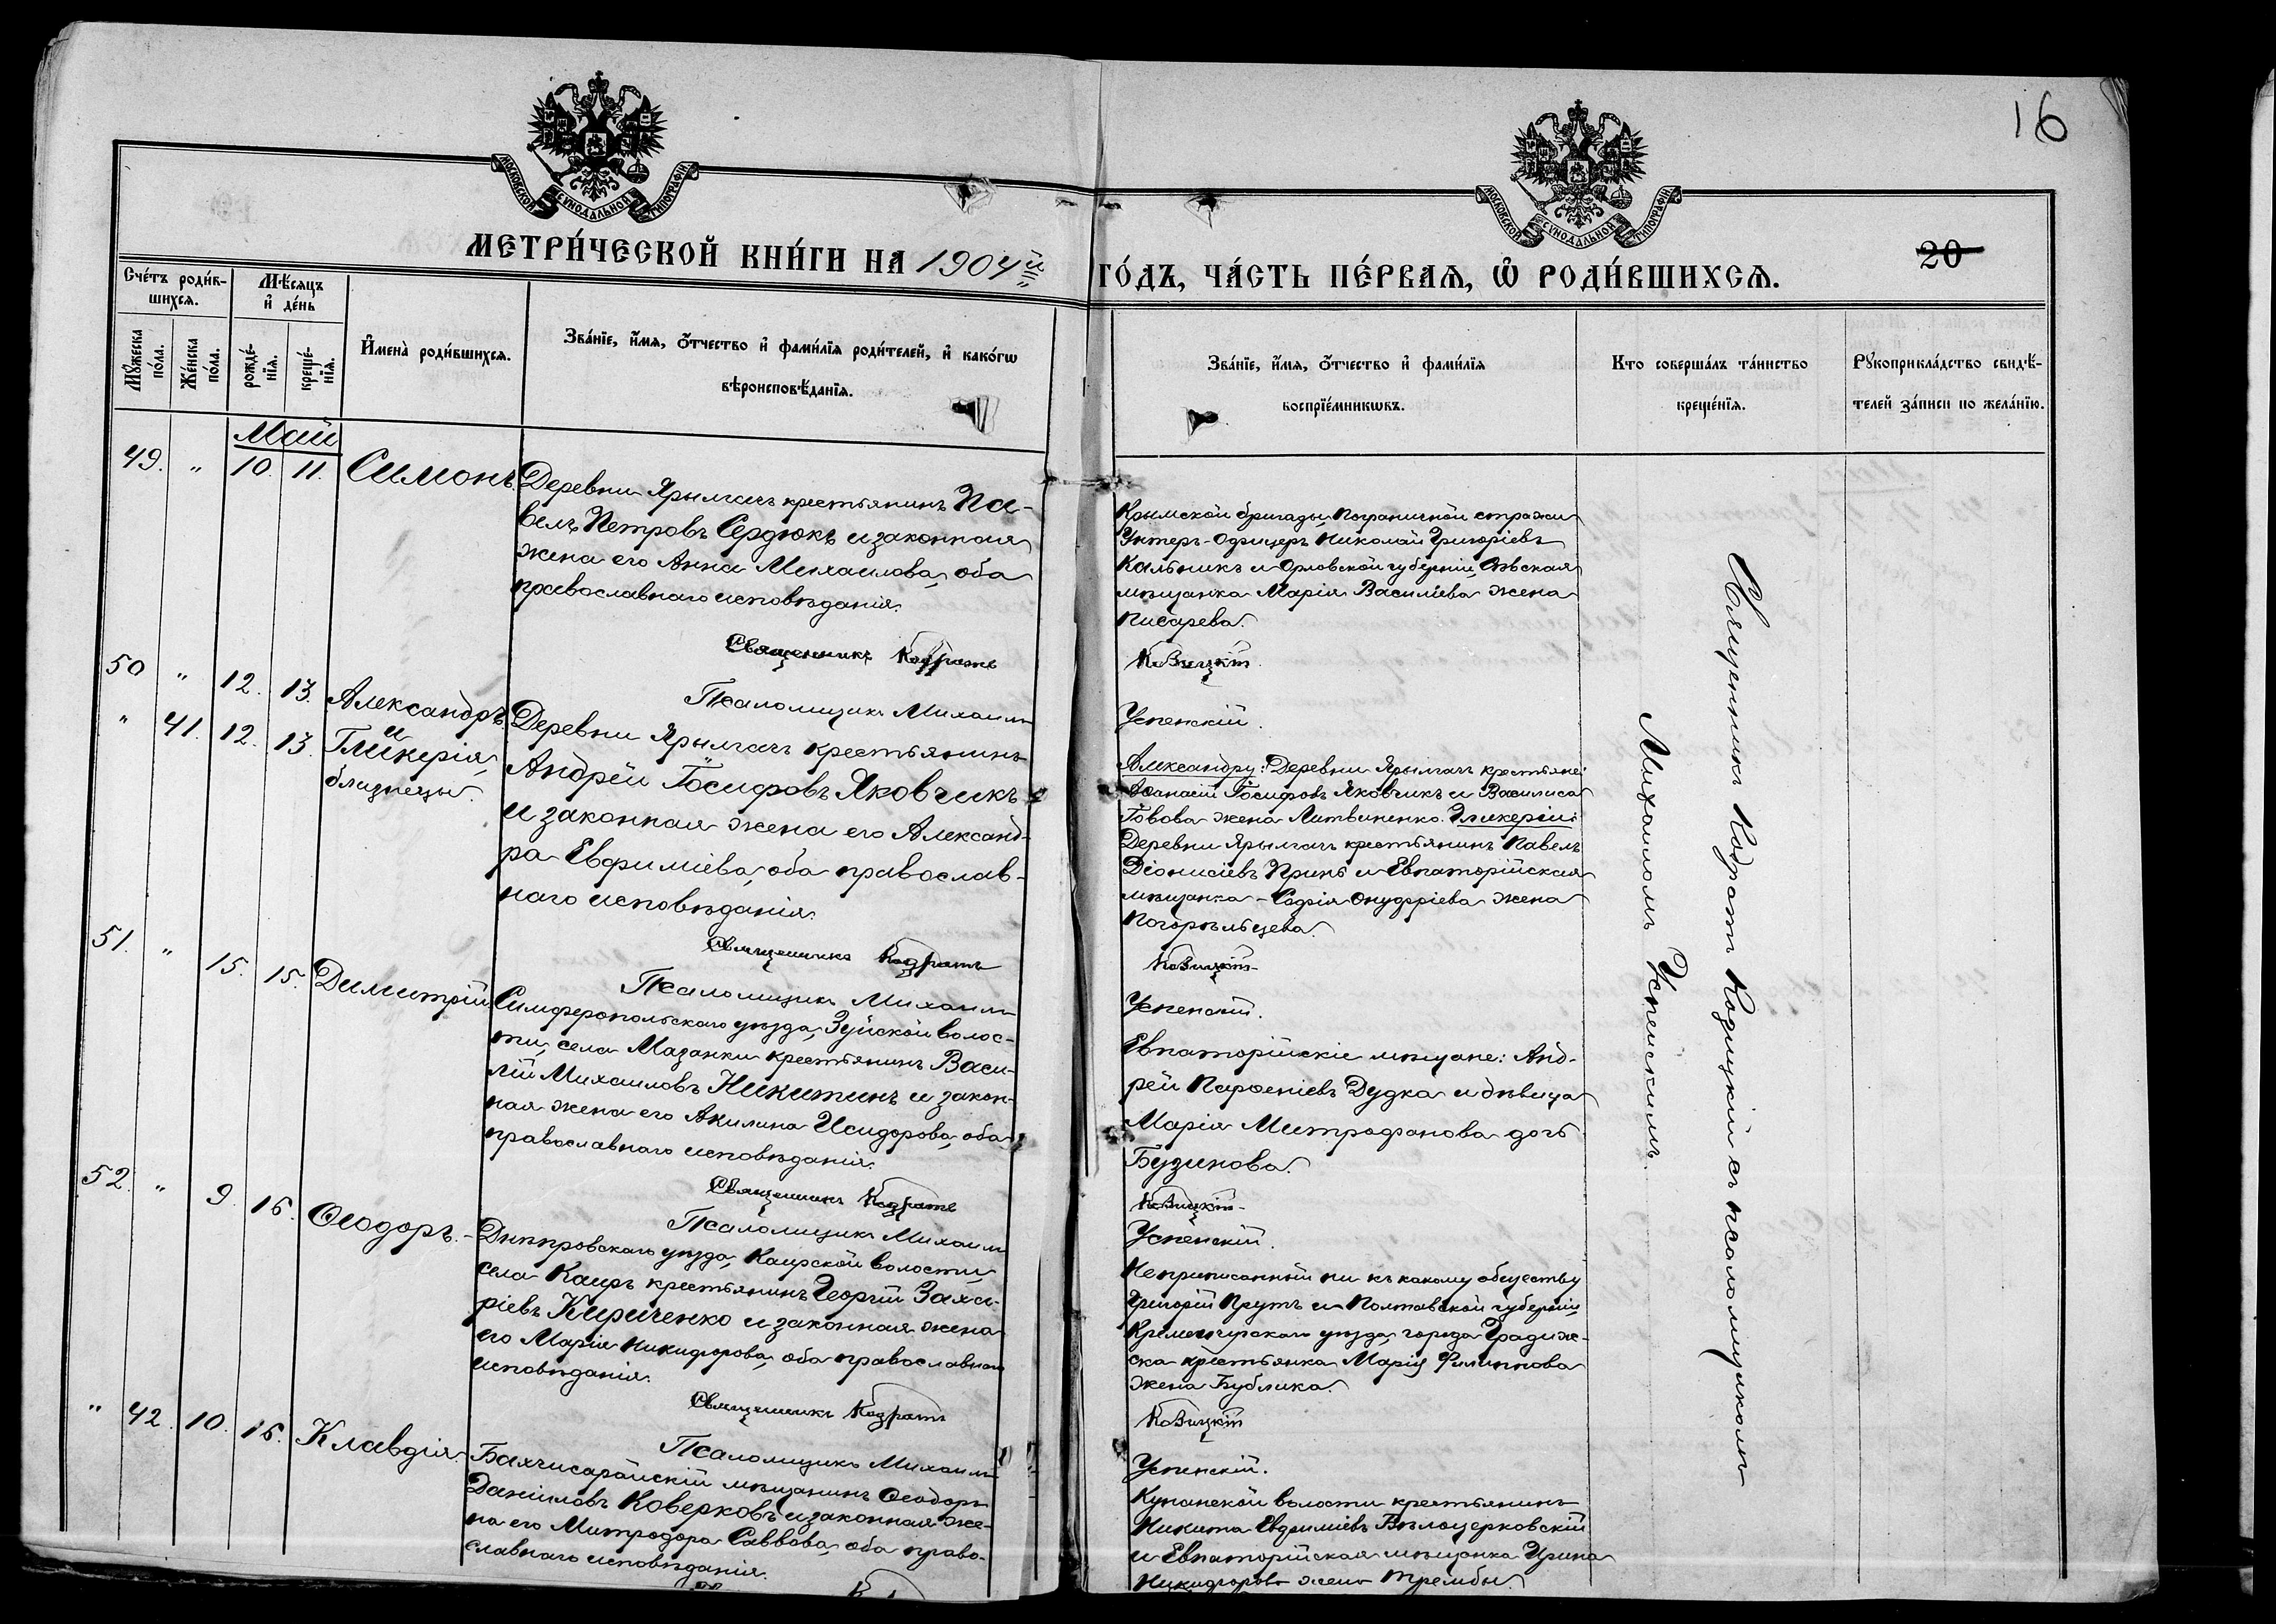 16
МОСКОВСКОЙ СѴНОДАЛЬНОЙ ТИПОГРАФІИ
МОСКОВСКОЙ СѴНОДАЛЬНОЙ ТИПОГРАФІИ
МЕТРИ́ЧЕСКОЙ КНИ́ГИ НА 1904й
ГО́ДЪ, ЧА́СТЬ ПЕ́РВАЯ, Ѽ РОДИ́ВШИХСЯ.
20
Сче́тъ роди́в-
шихся.
Мѣ́сяцъ
и҆ де́нь
Мꙋ́жеска
по́ла.
Же́нска
по́ла.
рожде́-
нїя.
креще́-
нїя.
И҆мена̀ роди́вшихся.
Зва́нїе, и҆́мя, ѻ҆́тчество и҆ фами́лїя роди́телей, и҆ како́гѡ
вѣроисповѣ́данїя.
Зва́нїе, и҆́мя, ѻ҆́тчество и҆ фами́лїя
воспрїе́мникѡвъ.
Кто соверша́лъ та́инство
креще́нїя.
Рꙋкоприкла́дство свидѣ́-
телей за́писи по жела́нїю.
Май
49. " 10. 11. Симонъ.
Деревни Ярылгачъ крестьянинъ Па-
велъ Петровъ Сердюкъ и законная
жена его Анна Михаилова, оба
православнаго исповѣданія.
Священникъ Кодратъ
Псаломщикъ Михаилъ
Крымской бригады Пограничной стражи
Унтеръ-Офицеръ Николай Григоріевъ
Кальникъ и Орловской губерніи, Сѣвская
мѣщанка Марія Василіева жена
Писарева.
Козицкій
Успенскій.
50 " 12. 13. Александръ
и
" 41. 12. 13. Гликерія,
близнецы.
Деревни Ярылгачъ крестьянинъ
Андрей Іосифовъ Яковчикъ
и законная жена его Александ-
ра Евфиміева, оба православ-
наго исповѣданія.
Священникъ Кодратъ
Псаломщикъ Михаилъ
Александру: Деревни Ярылгачъ крестьяне:
Аѳанасій Іосифовъ Яковчикъ и Василиса
Іовова жена Литвиненко. Гликеріи:
Деревни Ярылгачъ крестьянинъ Павелъ
Діонисіевъ Принь и Евпаторійская
мѣщанка - Софія Онуфріева жена
Погорѣльцева.
Козицкій
Успенскій.
51. " 15. 15. Димитрій
Симферопольскаго уѣзда, Зуйской волос-
ти, села Мазанки крестьянинъ Васи-
лій Михаиловъ Никитинъ и закон-
ная жена его Акилина Исидорова, оба
православнаго исповѣданія.
Священникъ Кодратъ
Псаломщикъ Михаилъ
Евпаторійскіе мѣщане: Анд-
рей Парѳеніевъ Дудка и дѣвица
Марія Митрофанова дочь
Бузинова.
Козицкій
Успенскій.
52. " 9. 16. Ѳеодоръ.
Днѣпровскаго уѣзда, Каирской волости,
села Каиръ крестьянинъ Георгій Заха-
ріевъ Кириченко и законная жена
его Марія Никифорова, оба православнаго
исповѣданія.
Священникъ Кодратъ
Псаломщикъ Михаилъ
Неприписанный ни къ какому обществу
Григорій Прутъ и Полтавской губерніи,
Кременчугскаго уѣзда, города Градиж-
ска крестьянка Марія Филиппова
жена Бублика.
Козицкій
Успенскій.
" 42. 10. 16. Клавдія.
Бахчисарайскій мѣщанинъ Ѳеодоръ
Даніиловъ Коверковъ и законная же-
на его Митродора Саввова, оба право-
славнаго исповѣданія.
Кунанской волости крестьянинъ
Никита Евфиміевъ Бѣлоцерковскій
и Евпаторійская мѣщанка Ирина
Никифорова жена Трембы.
Священникъ Кодратъ Козицкій съ псаломщикомъ
Михаиломъ Успенскимъ.